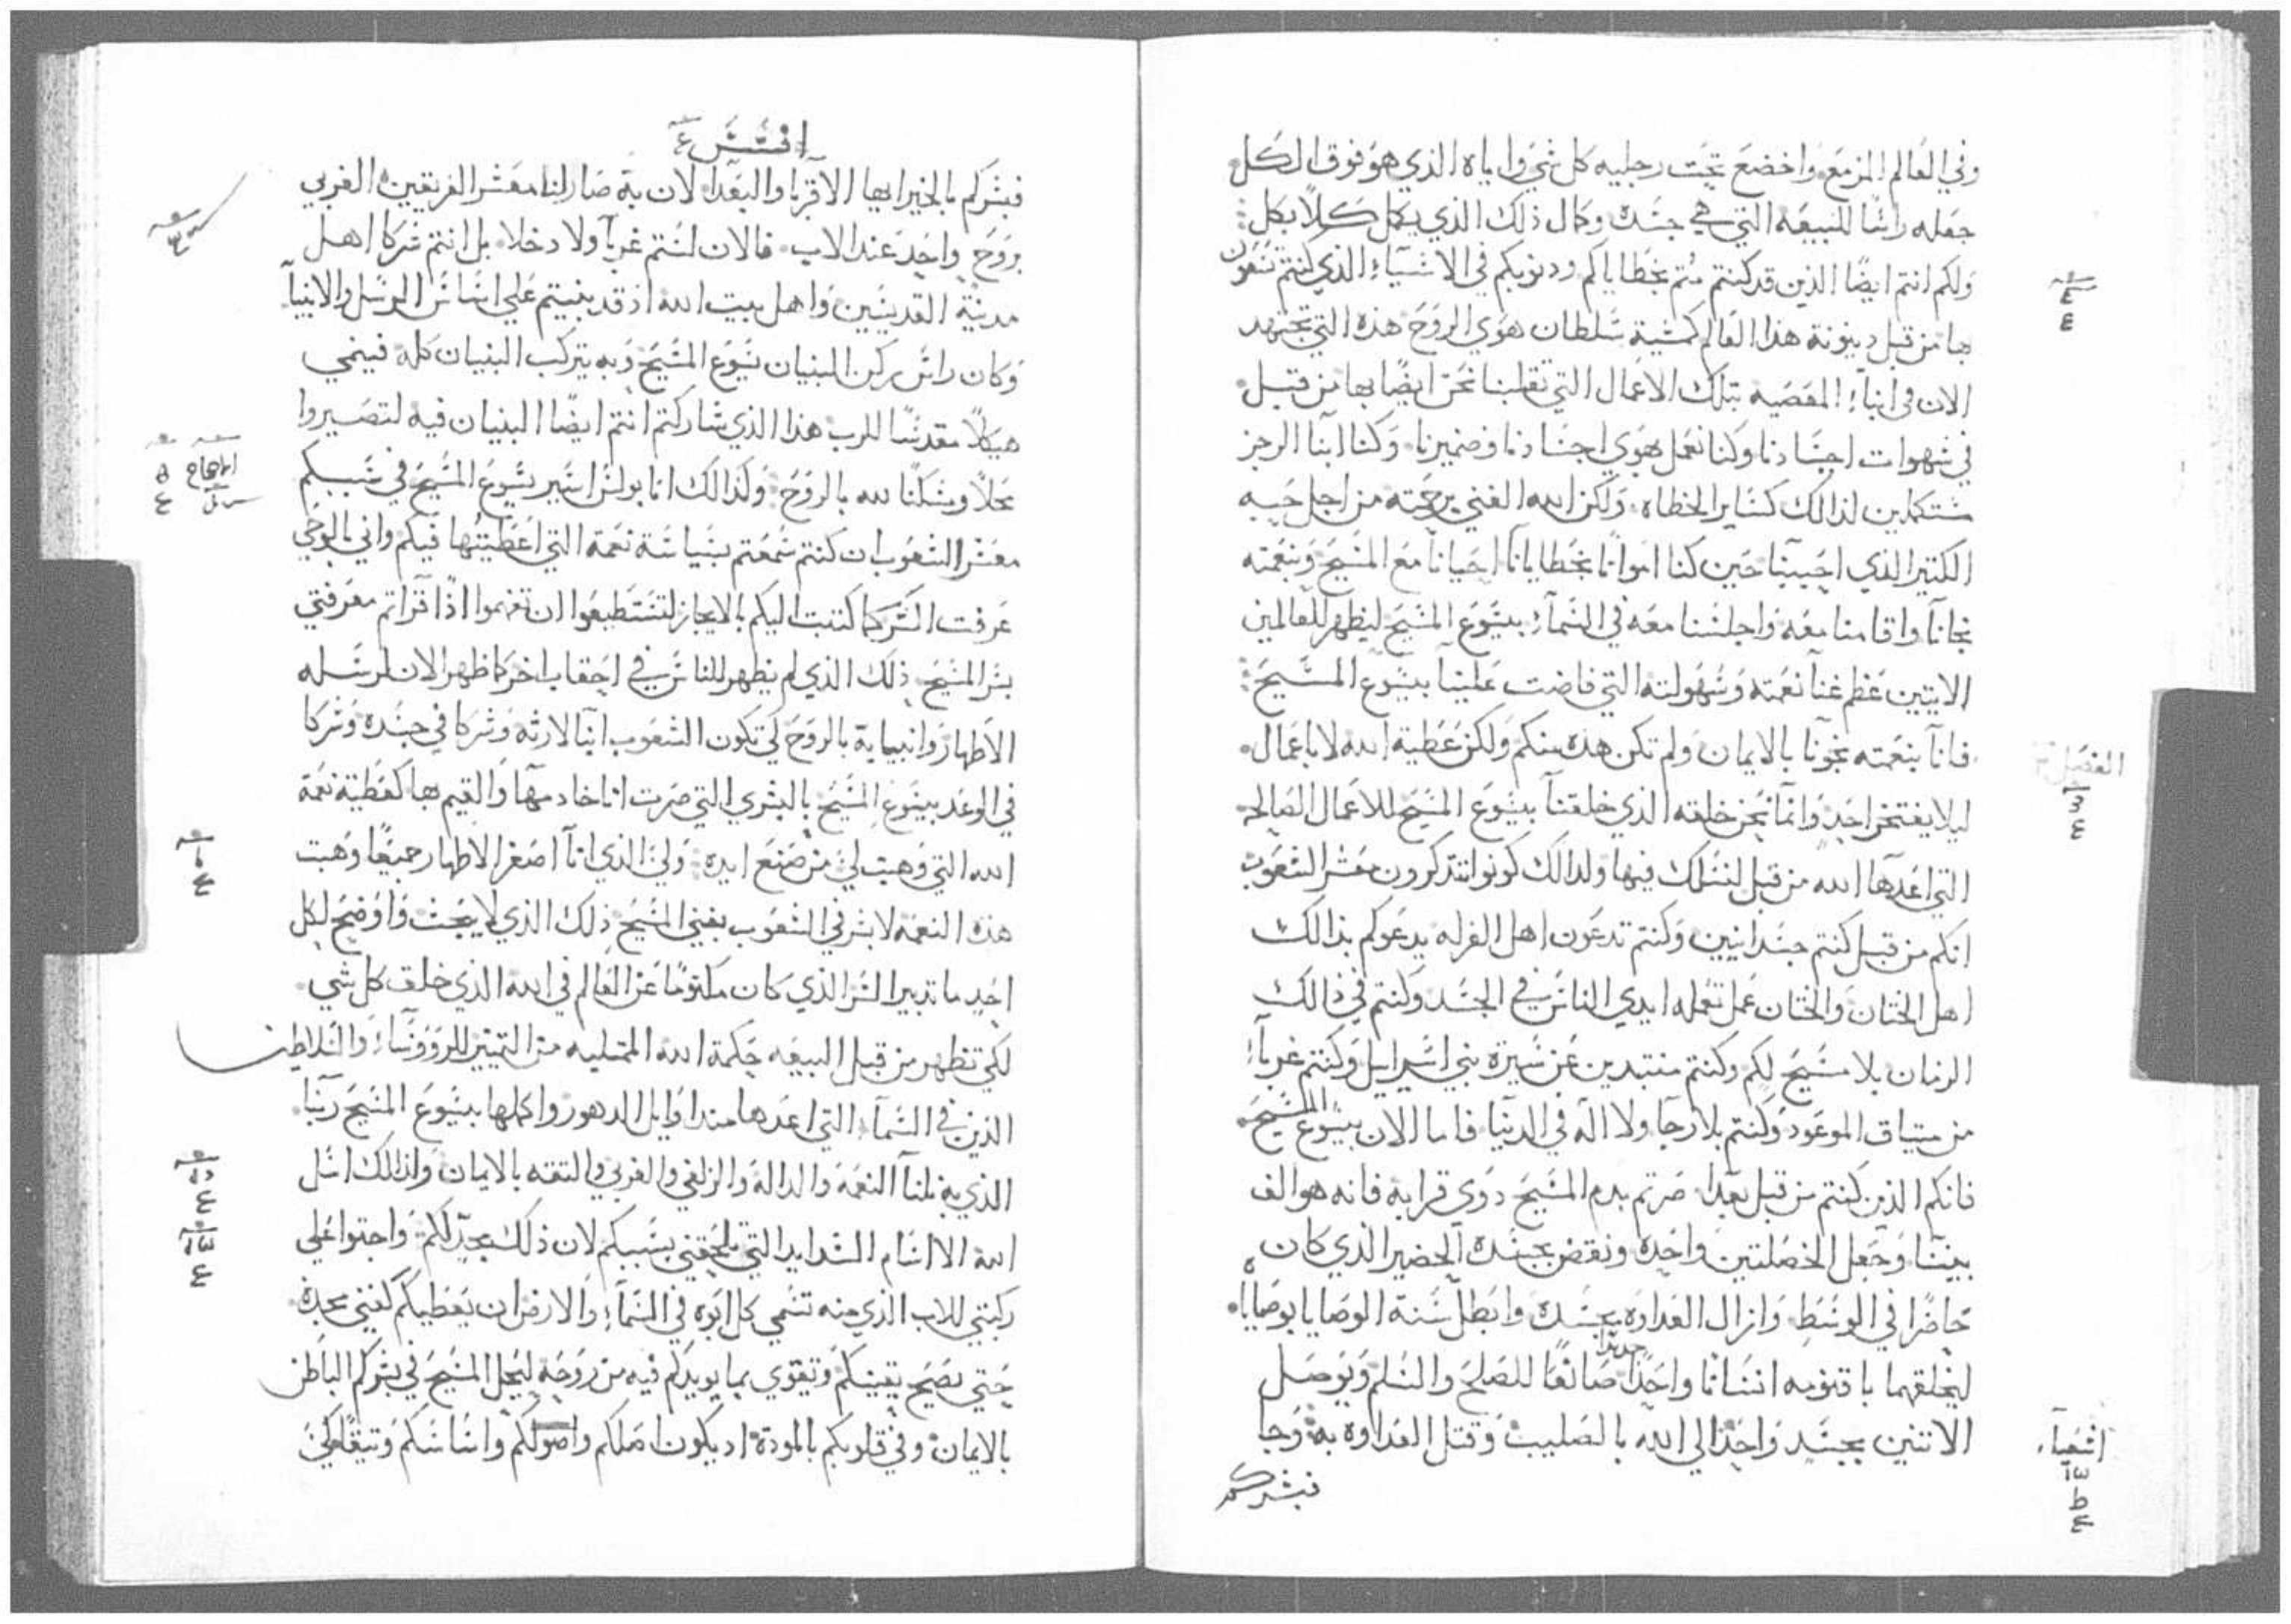 وفي العالم المزمع واخضع تحت رجليه كل شي واياه الذي هو فوق الكل
جعله راسًا للبيعه التي هي جسده وكمال ذلك الذي يكمل كلًا بكل
ولكم انتم ايضًا الذين قد كنتم متم بخطاياكم ودنوبكم في الاشياء الذي كنتم تسعون
بها من قبل دينونة هذا العالم كمشية سلطان هوي الروح هذه التي تجتهد
الان في ابناء المعصيه بتلك الاعمال التي تقلبنا نحن ايضًا بها من قبل
في شهوات اجسادنا وكنا نعمل بهوي اجسادنا وضميرنا وكنا ابنا الرجز
مستكملين لذالك كساير الخطاه ولكن الله الغني برحمته من اجل حبه
الكتير الذي احببنا حين كنا امواتًا بخطايانا احيانا مع المسيح وبنعمته
نجانا واقامنا معه واجلسنا معه في السماء بيسوع المسيح ليظهر للعالمين
الاتيين عظم غنا نعمته وسهولته التي فاضت علينا بيسوع المسيح
فانا بنعمته نجونا بالايمان ولم تكن هذه منكم ولكن عطية الله لا باعمال
ليلا يفتخر احد وانما نحن خلقه الذي خلقنا بيسوع المسيح للاعمال الصالحه
التي اعدها الله من قبل لنسلك فيها ولدالك كونوا تتذكرون معشر الشعوب
انكم من قبل كنتم جسدانيين وكنتم تدعون اهل الغرله يدعوكم بذالك
اهل الختان والختان عمل تعمله ايدي الناس في الجسد وكنتم في ذالك
الزمان بلا مسيح لكم وكنتم منتبدين عن سيرة بني اسراييل وكنتم غرباء
من ميتاق الموعود وكنتم بلا رجا ولا اله في الدنيا فاما الان بيسوع المسيح
فانكم الذين كنتم من قبل بعدا صرتم بدم المسيح دوي قرابه فانه هو الف
بيننا وجعل الخصلتين واحده ونقض بجسده الحضير الذي كان
حاضرًا في الوسط وازال العداوه بجسده وابطل سنة الوصايا بوصاياه
ليخلقهما باقنومه انسانًا واحدًا جديدًا صانعًا للصلح والسلم ويوصل
الاتنين بجسد واحد الي الله بالصليب وقتل العداوه به وجا
فبشركم
الفصل
اشعياء
افسس ع
فبشركم بالخير ايها الاقربا والبعدا لان به صار لنا معشر الفريقين القربي
بروح واحد عند الاب فالان لستم غربآ ولا دخلا بل انتم شركا اهل
مدينة القديسين واهل بيت الله اذ قد بنيتم علي اساس الرسل والانبيآ
وكان راس ركن البنيان يسوع المسيح وبه يتركب البنيان كله فينمي
هيكلًا مقدسًا للرب هذا الذي شاركتم انتم ايضًا البنيان فيه لتصيروا
محلًا ومسكنًا لله بالروح وكذالك انا بولس اسير يسوع المسيح في سببكم
معشر الشعوب ان كنتم سمعتم بسياسة نعمة التي اعطيتها فيكم واني بالوحي
عرفت السر كما كتبت اليكم بالايجاز لتستطيعوا ان تفهموا اذا قراتم معرفتي
بسر المسيح ذلك الذي لم يظهر للناس في احقاب اخر كما ظهر الان لرسله
الاطهار وانبيايه بالروح لكي تكون الشعوب ابنآ لارثه وشركا في جسده وشركا
في الوعد بيسوع المسيح بالبشري التي صرت انا خادمها والقيم بها كعطية نعمة
الله التي وهبت لي من صنع ايده ولي الذي انا اصغر الاطهار جميعًا وهبت
هذه النعمه لابشر في الشعوب بغني المسيح ذلك الذي لا يبحث واوضح لكل
احد ما تدبير السر الذي كان مكتومًا عن العالم في الله الذي خلق كل شي
لكي تظهر من قبل البيعه حكمة الله الممتليه من التمييز للروؤساء والسلاطين
الذين في السماء التي اعدها مند اوايل الدهور واكملها بيسوع المسيح ربنا
الذي به نلنا النعمة والدالة والزلفي والقربي والتقه بالايمان ولذالك اسل
الله الا اسام الشدايد التي تلحقني بسببكم لان ذلك مجدًا لكم واجتوا علي
ركبتي للاب الذي منه تسمي كل ابوه في السماء والارض ان يعطيكم كغني مجده
حتي يصح يقينكم وتقوي بما يويدكم فيه من روحه ليحل المسيح في بشركم الباطن
بالايمان وفي قلوبكم بالمودة اد يكون اصلكم واصولكم واساسكم وتيقًا لكي